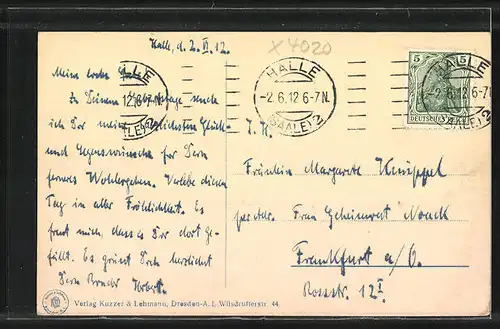 Halle, d. 2. VI. 12
× 4020
Mein liebe
HALLE
-2.6.12 6-7N.
(SAALE) 2
HALLE
-2.6.12 6-7N.
(SAALE) 2
5 5
DEUTSCHES REICH
Zu Deinem Geburtstage sende
ich Dir meine herzlichsten Glück-
und Segenswünsche für Dein
ferneres Wohlergehen. Verlebe diesen
Tag in aller Fröhlichkeit. Es
freut mich, dass es Dir dort ge-
fällt. Es grüsst Dich herzlichst
Dein Bruder Herbert.
Fräulein Margarete
Frau Geheimrat Noack
Frankfurt a/O.
Rossstr. 12 I
Verlag Kuzzer & Lehmann, Dresden-A. I, Wilsdrufferstr. 44.